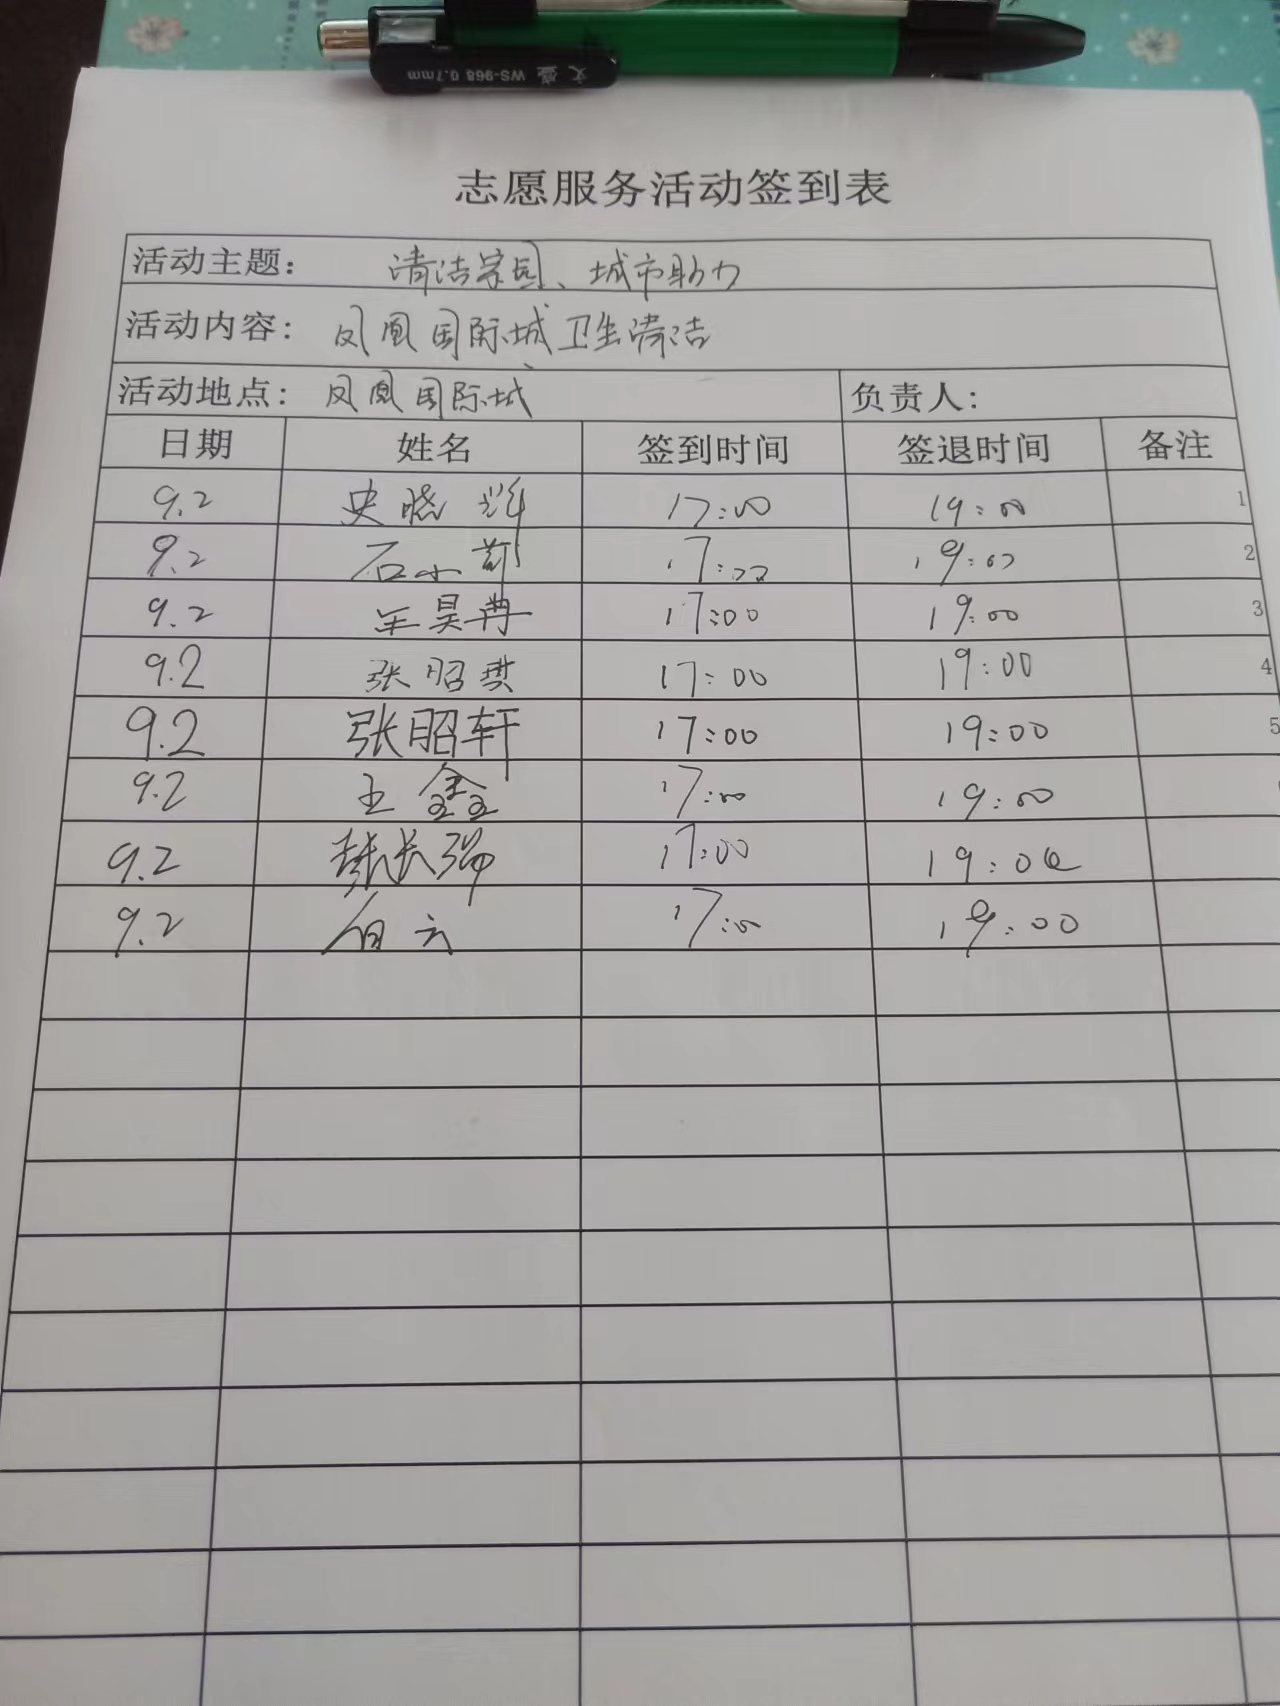 文盛 WS-968 0.7mm
志愿服务活动签到表
活动主题: 清洁家园、城市助力
活动内容: 凤凰国际城卫生清洁
活动地点: 凤凰国际城 负责人:
日期 姓名 签到时间 签退时间 备注
9.2 史晓辉 17:00 19:00 1
9.2 石小莉 17:00 19:00 2
9.2 王昊冉 17:00 19:00 3
9.2 张昭琪 17:00 19:00 4
9.2 张昭轩 17:00 19:00 5
9.2 王鑫 17:00 19:00
9.2 张长强 17:00 19:00
9.2 白云 17:00 19:00